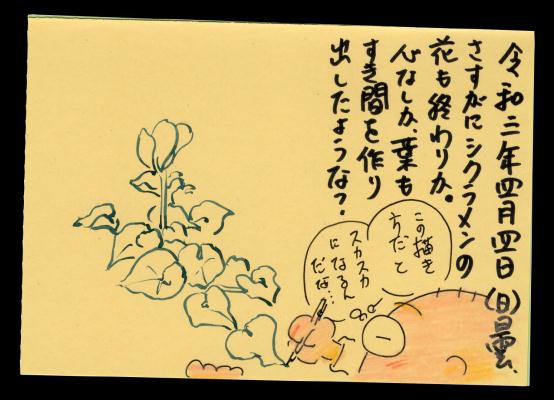 令和三年四月四日(日)曇、
さすがにシクラメンの
花も終わりか。
心なしか、葉も
すき間を作り
出したような?
この描き
方だと
スカスカ
になるん
だな…